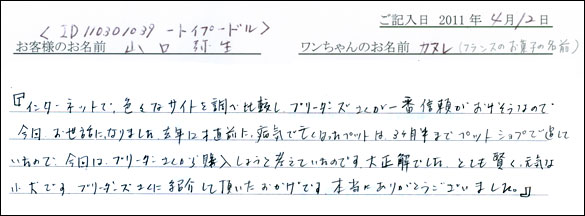 ご記入日 2011年4月12日
<ID110301039 ートイプードル>
お客様のお名前 山口弥生 ワンちゃんのお名前 カヌレ(フランスのお菓子の名前)
『インターネットで、色々なサイトを調べ比較し、ブリーダーズさんが一番信頼がおけそうなので
今回お世話になりました。去年12才直前に、病気で亡くなったペットは、3ヶ月半までペットショップで過して
いたので、今回は、ブリーダーさんから購入しようと考えていたのです。大正解でした。とても賢く、元気な
小犬です。ブリーダーズさんに紹介して頂いたおかげです。本当にありがとうございました。』